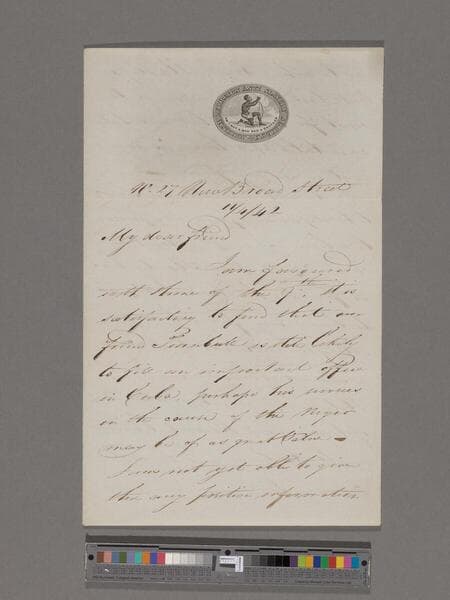 No. 27 New Broad Street
My dear friend
I am favoured
with thine of the 9th. It is
satisfactory to find that our
friend Turnbull is still likely
to fill an important office
in Cuba, perhaps his services
in the cause of the Negro
may be of as great value —
I am not yet able to give
thee any positive information